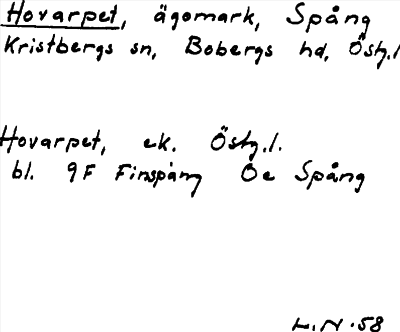 Hovarpet, ägomark, Spång
Kristbergs sn, Bobergs hd, Östg.l
Hovarpet, ek. Östg.l.
bl. 9F Finspång Öe Spång
L.N.58